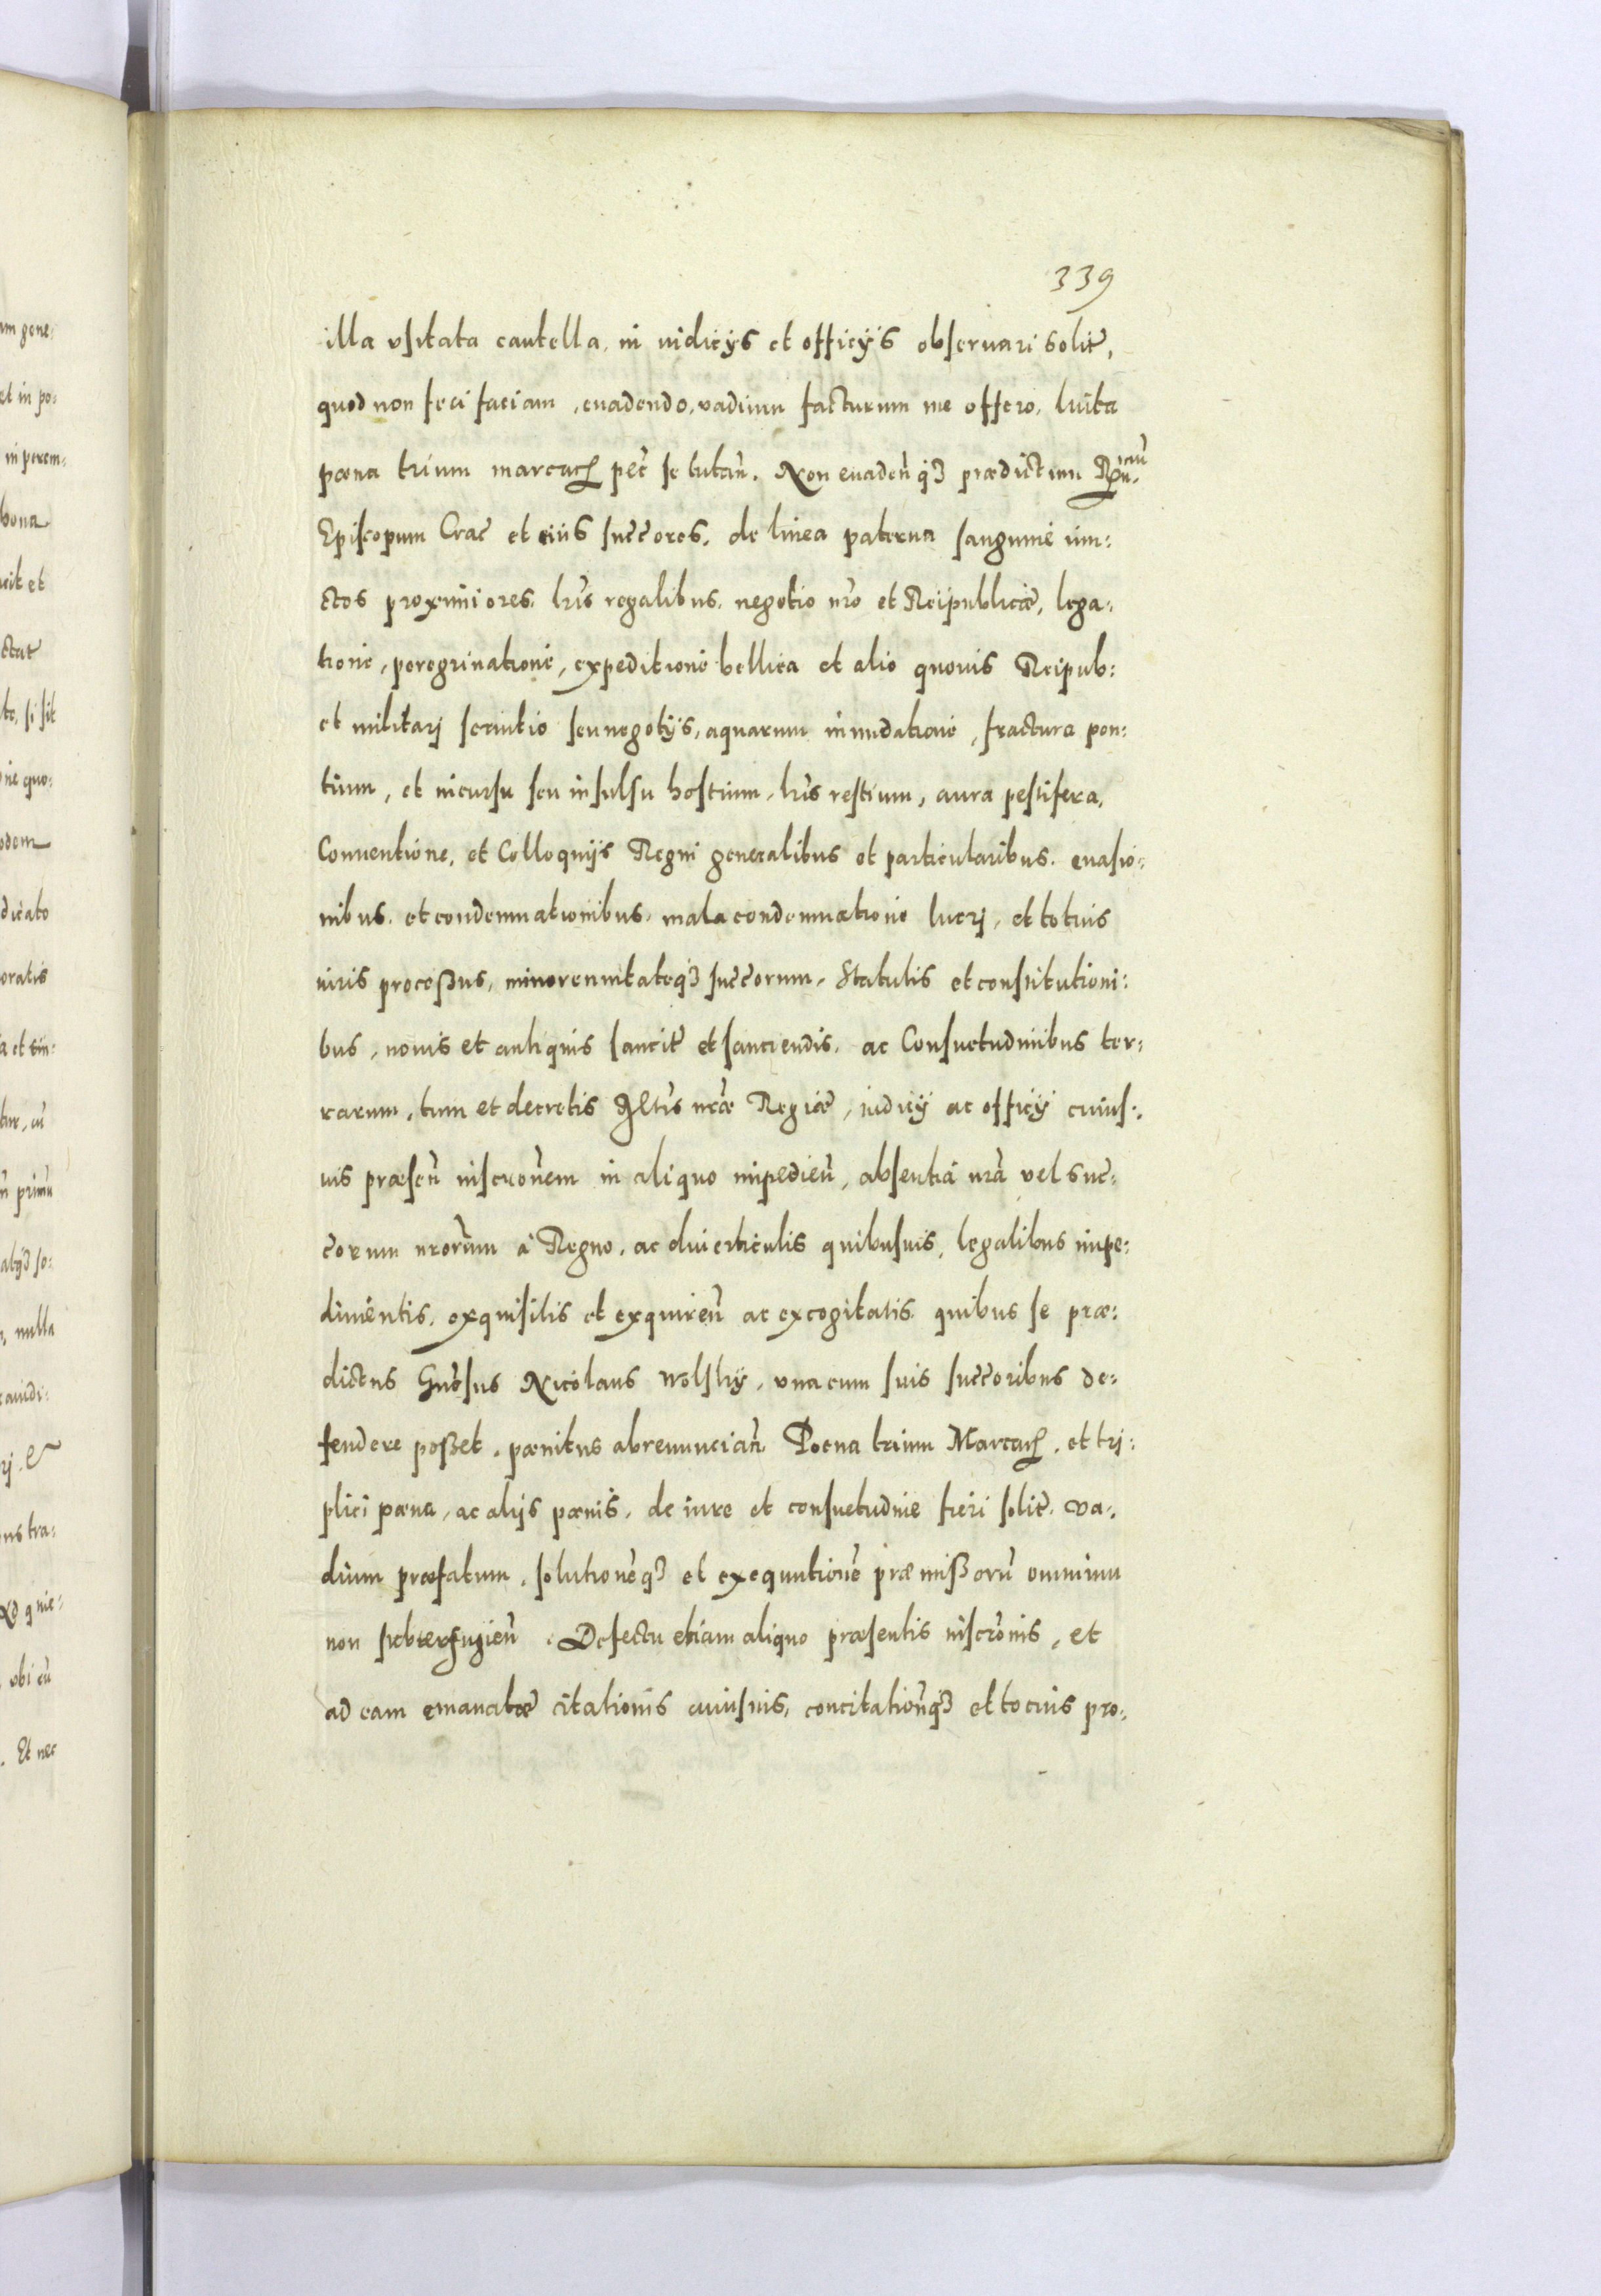 339
illa vsitata cautella, in iudicijs et officijs obseruari solit̃,
quod non feci faciam, euadendo, vadium facturum me offero, luita
pœna trium marcarꝝ pec̃ se tutañ. Non euadeñqꝫ prædictum Rñ.
Episcopum Crac̃ et eius succ̃ores, de linea paterna sanguine iun:
ctos proximiores, lr̃is regalibus, negotio nr̃o et Reipublicæ, lega:
tione, peregrinatione, expeditione bellica et alio quouis Reipub:
et militarj seruitio seu negotijs, aquarum inundatione, fractura pon:
tium, et incursu seu insulsu hostium, lr̃is restium, aura pestifera,
Conuentione, et Colloquijs Regni generalibus et particularibus, euasio:
nibus, et condemnationibus, mala condemnatione lucrj, et totius
iuris processus, minorennitateqꝫ succ̃orum, Statutis et constitutioni:
bus, nouis et antiquis sancit̃ et sanciendis, ac Consuetudinibus ter:
rarum, tum et decretis Mt̃is nr̃æ Regiæ, iudicij ac officij cuius:
uis præseñ inscrõnem in aliquo impedieñ, absentia nr̃a vel suc̃:
c̃orum nrõrum à Regno, ac diuerticulis quibusuis, legalibus impe:
dimentis, exquisitis et exquireñ ac excogitatis quibus se præ:
dictus Gnõsus Nicolaus Wolsky, vna cum suis succ̃oribus de:
fendere posset, pœnitus abrenunciañ Poena trium Marcarꝝ, et tri:
plici pœna, ac alijs pœnis, de iure et consuetudine fieri solit̃, va:
dium præfatum, solutionẽqꝫ et exequutionẽ præmissorũ omnium
non subterfugieñ. Defectu etiam aliquo præsentis inscrõnis, et
ad eam emanatæ citationis cuiusuis, concitationĩsqꝫ et tocius pro: